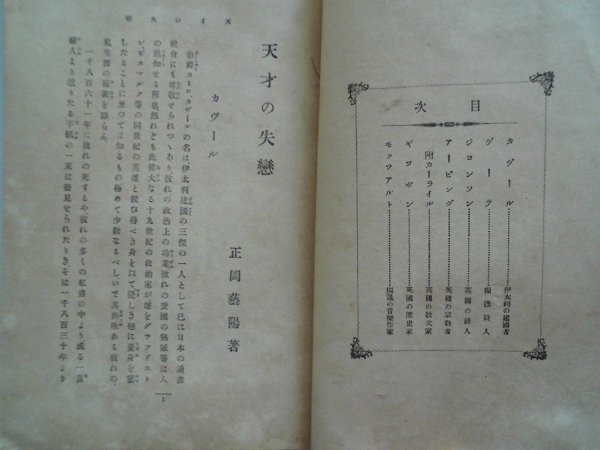 目次
カヴール…………伊太利の建國者
ゲーテ…………獨逸詩人
ジョンソン…………英國の詩人
アービング…………英國の宗教者
附カーライル…………英國の散文家
ギツボン…………英國の歴史家
モッツアルト…………獨逸の音樂作家
天才の失戀
天才の失戀
正岡藝陽著
カヴール
伯爵カミロ、カヴールの名は伊太利建國の三傑の一人として已に日本の讀書
社會にも尊敬せられつゝあり、彼れの政治上の功業彼れの愛國の熱誠等は人
の熟知せる所也然れども此偉大なる十九世紀の政治家が雄をグラッドスト
ン、ビスマルク等の同世紀の英雄と競ひ得べき身を以て
したることに至つては知るもの極めて少數なるべし、いで英雄ある彼れの
私生涯の秘密を語らん、
一千八百六十一年に彼れの死するや彼れの多くの私書の中より或る一貴
婦人より送りたる手紙の一束は發見せられたりきそは一千八百三十年より
1